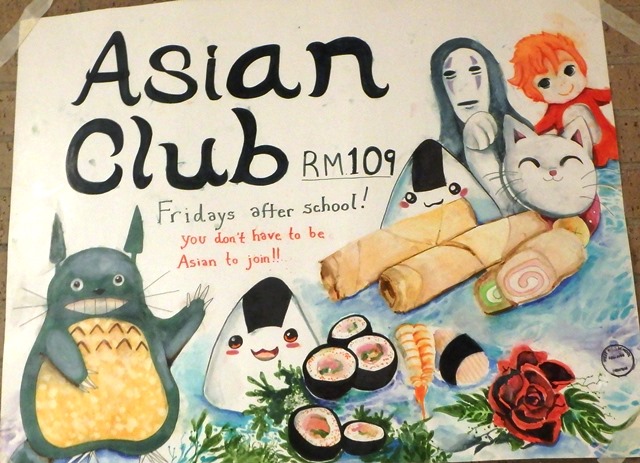 Asian
Club RM109
Fridays after school!
you don't have to be
Asian to join!!